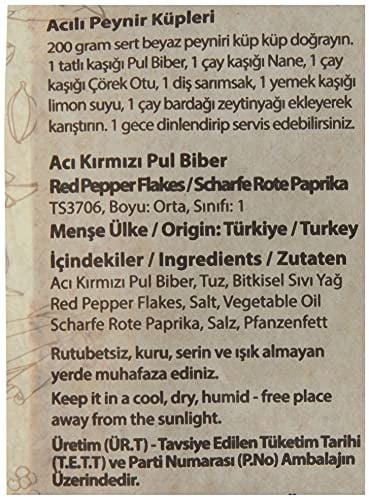 Acılı Peynir Küpleri
200 gram sert beyaz peyniri küp küp doğrayın.
1 tatlı kaşığı Pul Biber, 1 çay kaşığı Nane, 1 çay
kaşığı Çörek Otu, 1 diş sarımsak, 1 yemek kaşığı
limon suyu, 1 çay bardağı zeytinyağı ekleyerek
karıştırın. 1 gece dinlendirip servis edebilirsiniz.
Acı Kırmızı Pul Biber
Red Pepper Flakes / Scharfe Rote Paprika
TS3706, Boyu: Orta, Sınıfı: 1
Menşe Ülke / Origin: Türkiye / Turkey
İçindekiler / Ingredients / Zutaten
Acı Kırmızı Pul Biber, Tuz, Bitkisel Sıvı Yağ
Red Pepper Flakes, Salt, Vegetable Oil
Scharfe Rote Paprika, Salz, Pfanzenfett
Rutubetsiz, kuru, serin ve ışık almayan
yerde muhafaza ediniz.
Keep it in a cool, dry, humid - free place
away from the sunlight.
Üretim (ÜR.T) - Tavsiye Edilen Tüketim Tarihi
(T.E.T.T) ve Parti Numarası (P.No) Ambalajın
Üzerindedir.